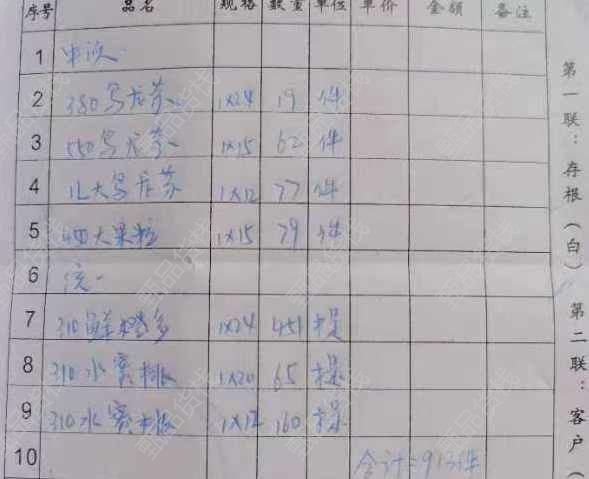 序号 品名 规格 数量 单位 单价 金额 备注
1
2 380乌龙茶 1×24 19 件
3 550乌龙茶 1×15 62 件
4 1L大乌龙茶 1×12 77 件
5 大果粒 1×15 79 件
6 统一
7 310鲜橙多 1×24 451
8 310水蜜桃 1×20 65
9 310水蜜桃 1×12 160
10 合计=913件
第一联：存根（白）
第二联：客户（